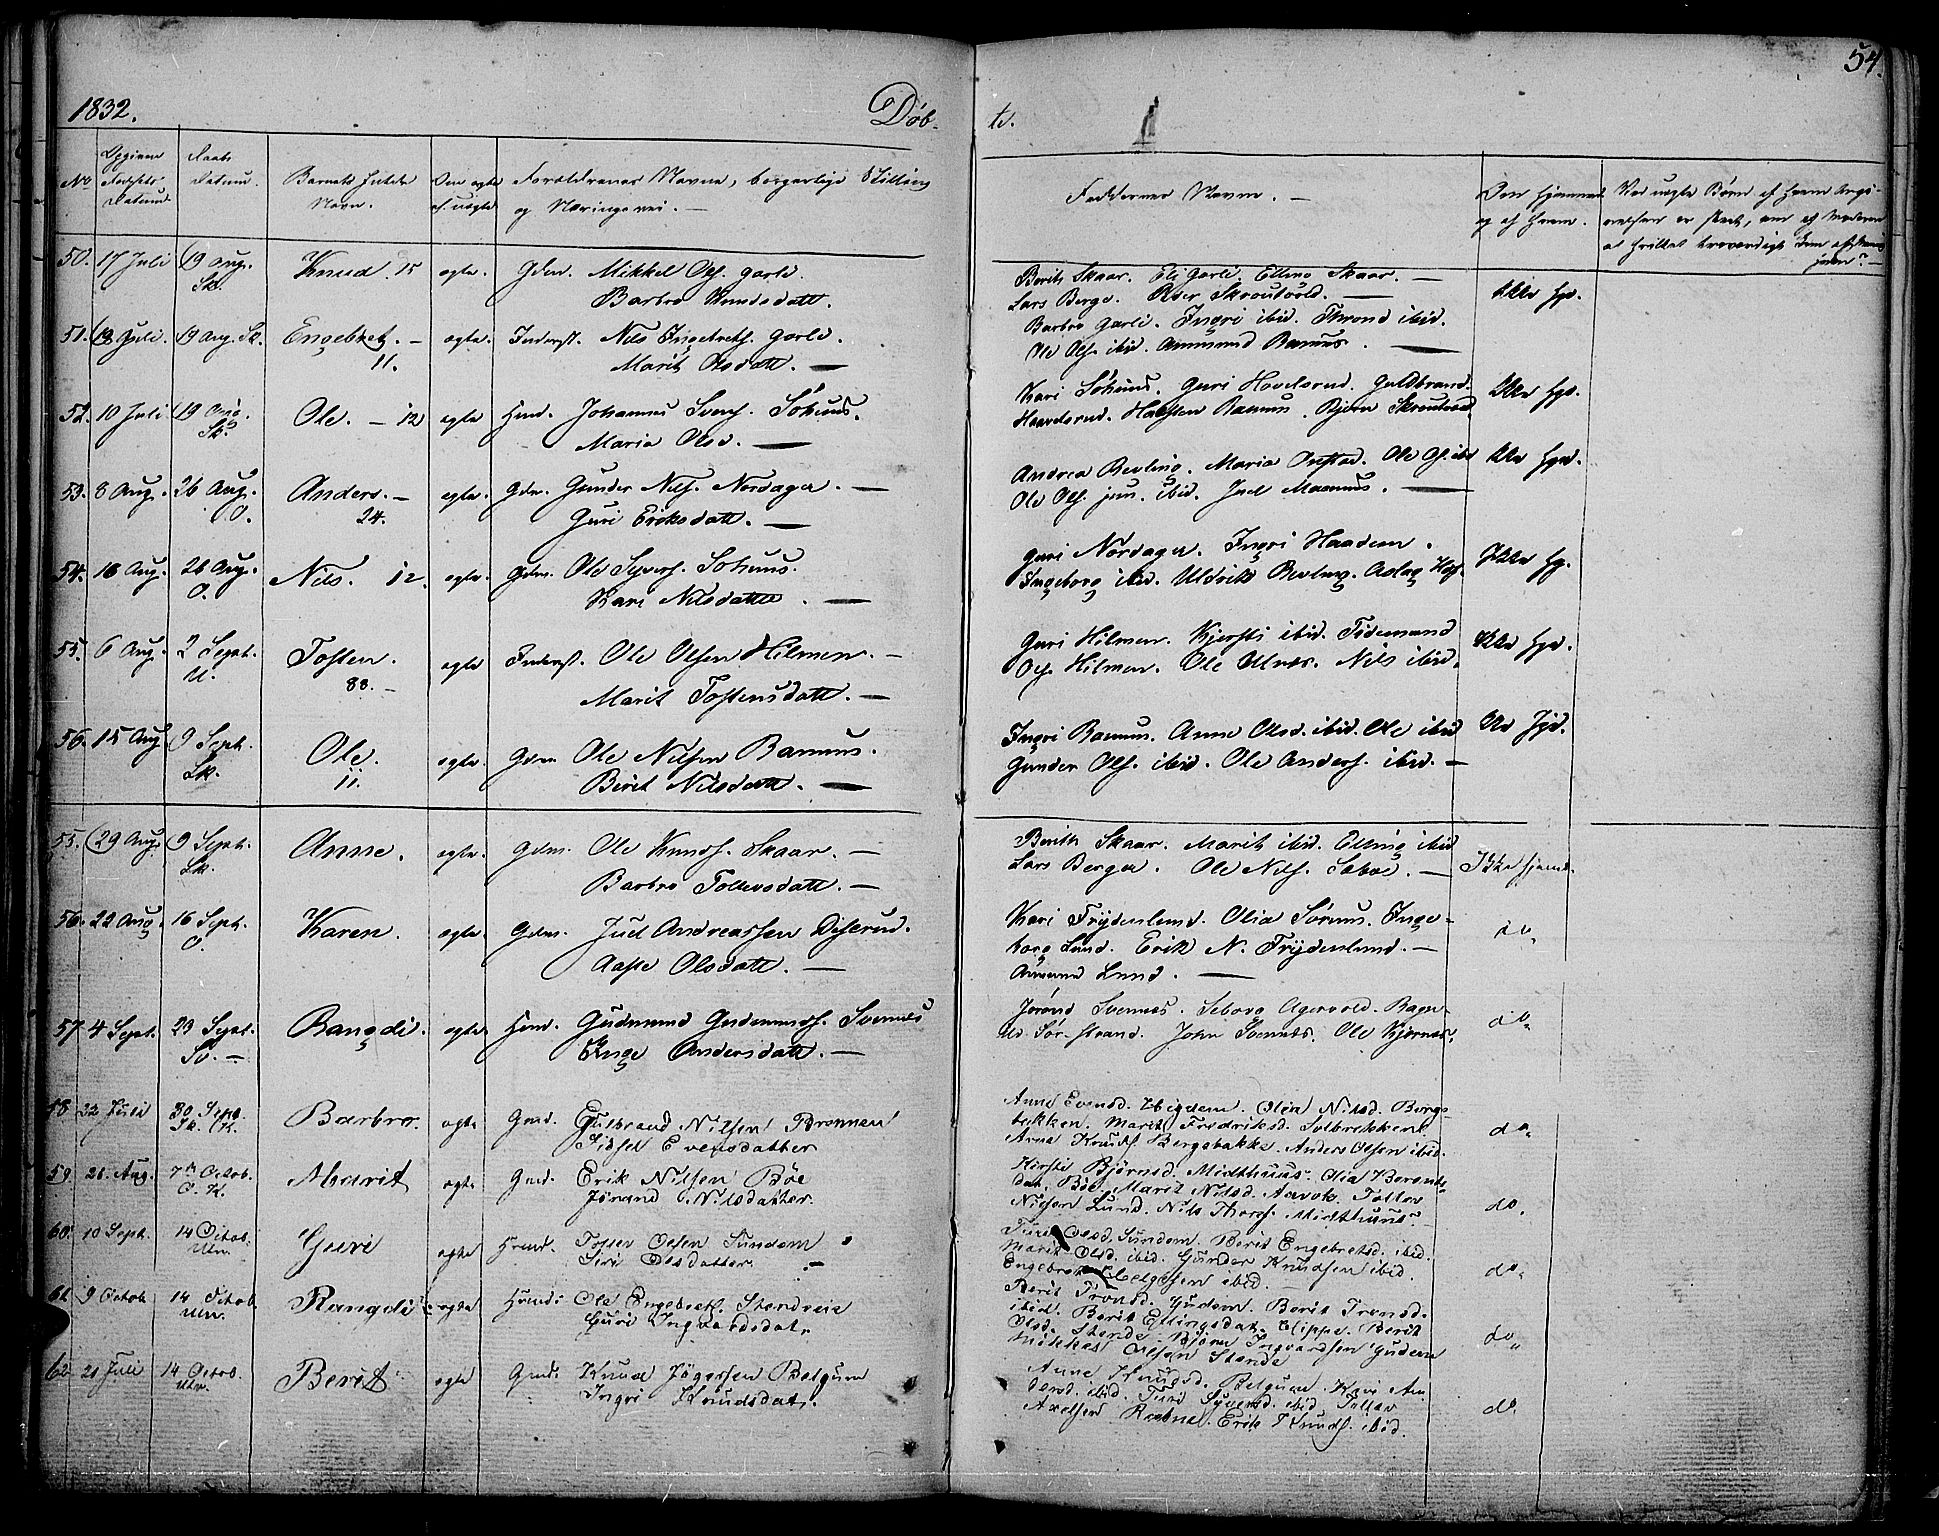 54.
1832. Døb- te.
No
Opgivne Fødsels Datum.
Daabs Datum.
Barnets fulde Navn.
Om ægte el. uægte
Forældrenes Navne, borgerlige Stilling
og Næringsvei. —
Faddernes Navne. —
Om hjemmed.
og af hvem.
Ved uægte Børn af hvem Angi-
50. 17 Juli 19 Aug. Sk. Knud. 15 ægte. Gdm. Mikkel Ols. Garli.
Barbro Knudsdatt.
Berith Skaar. Eli Garli. Elling Skaar. —
Lars Berge. Iver Skroutvold. —
Ikke Hjd.
51. 19 Juli. 19 Aug. Sk. Engebret. — 11. ægte. Inderst. Nils Ingebreths. Garli.
Marit Olsdatt. —
Barbro Garli. Ingri ibid. Thrond ibid.
Ole Ols. ibid. Ammund Ramus. —
52. 10 Juli 19 Aug. Sk. Ole. — 12 ægte. Hmd. Johannes Svens. Söhuus.
Maria Olsd. —
Kari Söhuus. Guri Havelsrud. Guldbrand
Haavelsrud. Halsten Ramus. Bjørn Skroutvold
Ikke Hjd.
53. 8 Aug. 26 Aug. O. Anders. — 24. ægte. Gdm. Gunder Nils. Nordager. —
Guri Eriksdatt. —
Andrea Revling. Maria Onstad. Ole Ols. ibd
Ole Ols. jun. ibid. Juel Magnus. —
Ikke Hjd.
54. 16 Aug. 26 Aug. O. Nils. 12. ægte. Gdm. Ole Syvers. Sohuus.
Kari Nilsdatt. —
Guri Nordager. Ingri Haadem.
Ingeborg ibid. Uldrik Revling. Aslag
Ikke Hj.
55. 6 Aug. 2 Sept. U. Tosten. 88. — ægte Inderst. Ole Olsen Hilmen. —
Marit Tostensdatt. —
Guri Hilmen. Kjersti ibid. Tidemand
Ols. Hilmen. Ole Ulnæs. Nils ibid.
Ikke Hjd.
56. 15 Aug 9 Sept. Sk. Ole. 11. ægte. Gdm. Ole Nilsen Ramus.
Birit Nilsdatt. —
Ingri Ramus. Anne Olsd. ibid. Ole ibid
Gunder Ols. ibid. Ole Anders. ibid. —
Ikke Hjd.
55. 29 Aug. 9 Sept. Sk. Anne. ægte. Gdm. Ole Knuds. Skaar. —
Barbro Tollevsdatt. —
Berith Skaar. Marit ibid. Elling ibid
Lars Berge. Ole Nils. Sæbøe. —
Ikke hjemd.
56. 22 Aug. 16 Sept. O. Karen. ægte. Gdm. Juel Andreassen Diserud.
Aase Olsdatt. —
Kari Frydenlund. Olia Sørum. Inge-
borg Lund. Erik N. Frydenlund. —
Ammund Lund. —
do„
57. 4 Sept. 23 Sept. Sv. — Rangdi. ægte Hmd. Gudmund Gudmunds. Svennæs
Inge Andersdatt. —
Jörand Svennæs. Seborg Agervold. Ragn-
ild Sør-Strand. John Svennæs. Ole Kjørnæs.
do„
58 22 Juli 30 Sept. Sk. K. Barbro. ægte Gmd. Gulbrand Nilsen Brennen
Sidsel Evensdatter
Anne Evensd. Haugen. Olea Nilsd. Berge-
bakken. Marit Frederiksd. Solbrekken.
Arne Knuds. Bergebakke. Anders Olsen ibid.
do„
59 26. Aug. 7de Octob. O. K. Marit ægte Gmd. Erik Nilsen Böe
Jörand Nilsdatter.
Kirsti Bjørnsd. Midthuus. Olia Berents-
dat. Böe. Marit Nilsd. Aavok. Tollev
Nilsen Lund. Nils Thors. Midthuus. —
do.
60. 10 Sept. 14 Octob. Uln. Guri ægte Hmd. Tosten Olsen Sundem
Siri Olsdatter. —
Turi Olsd. Sundem. Berit Engebretsd. ibid.
Marit Olsd. ibid. Gunder Knudsen ibid.
Engebret Helgesen ibid.
do„
61. 9 Octob 14 Octob Uln. Rangdi ægte Huusm: Ole Engebrets. Stendveie
Guri Ingvardsdat.
Berit Tronsd. Gudem. Berit Tronsd.
ibid. Berit Ellingsdat. Klippe. Berit
Olsd. Stende. Bjørn Ingvardsen Gudem
Mikkel Olsen Stende
do„
62 21 Juli 14 Octob. Uln. Berit ægte Gmd. Knud Jögersen Belgum
Ingri Knudsdat.
Anne Knudsd. Belgum. Kari An-
dersd. ibid. Turi Syversd. ibid. Tollev
Axelsen Robne. Erik Knuds. ibid.
do.